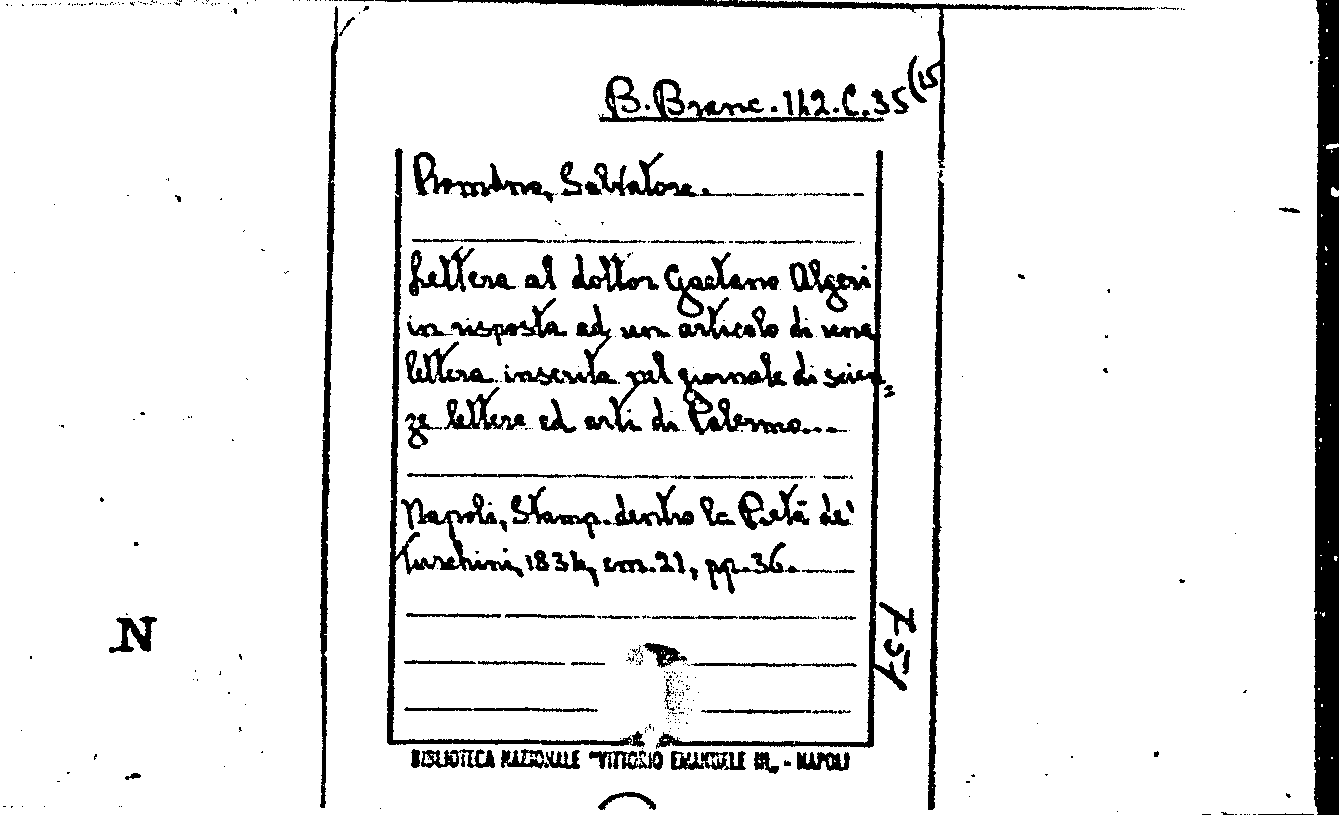 B. Branc. 142. C. 35 (15
Salvatore.
Lettera al dottor Gaetano Algeri
in risposta ad un articolo di una
lettera inserita nel giornale di scien=
ze lettere ed arti di Palermo...
Napoli, Stamp. dentro la Pietà de'
Turchini, 1834, cm. 21, pp. 36.
N
BIBLIOTECA NAZIONALE "VITTORIO EMANUELE III„ - NAPOLI